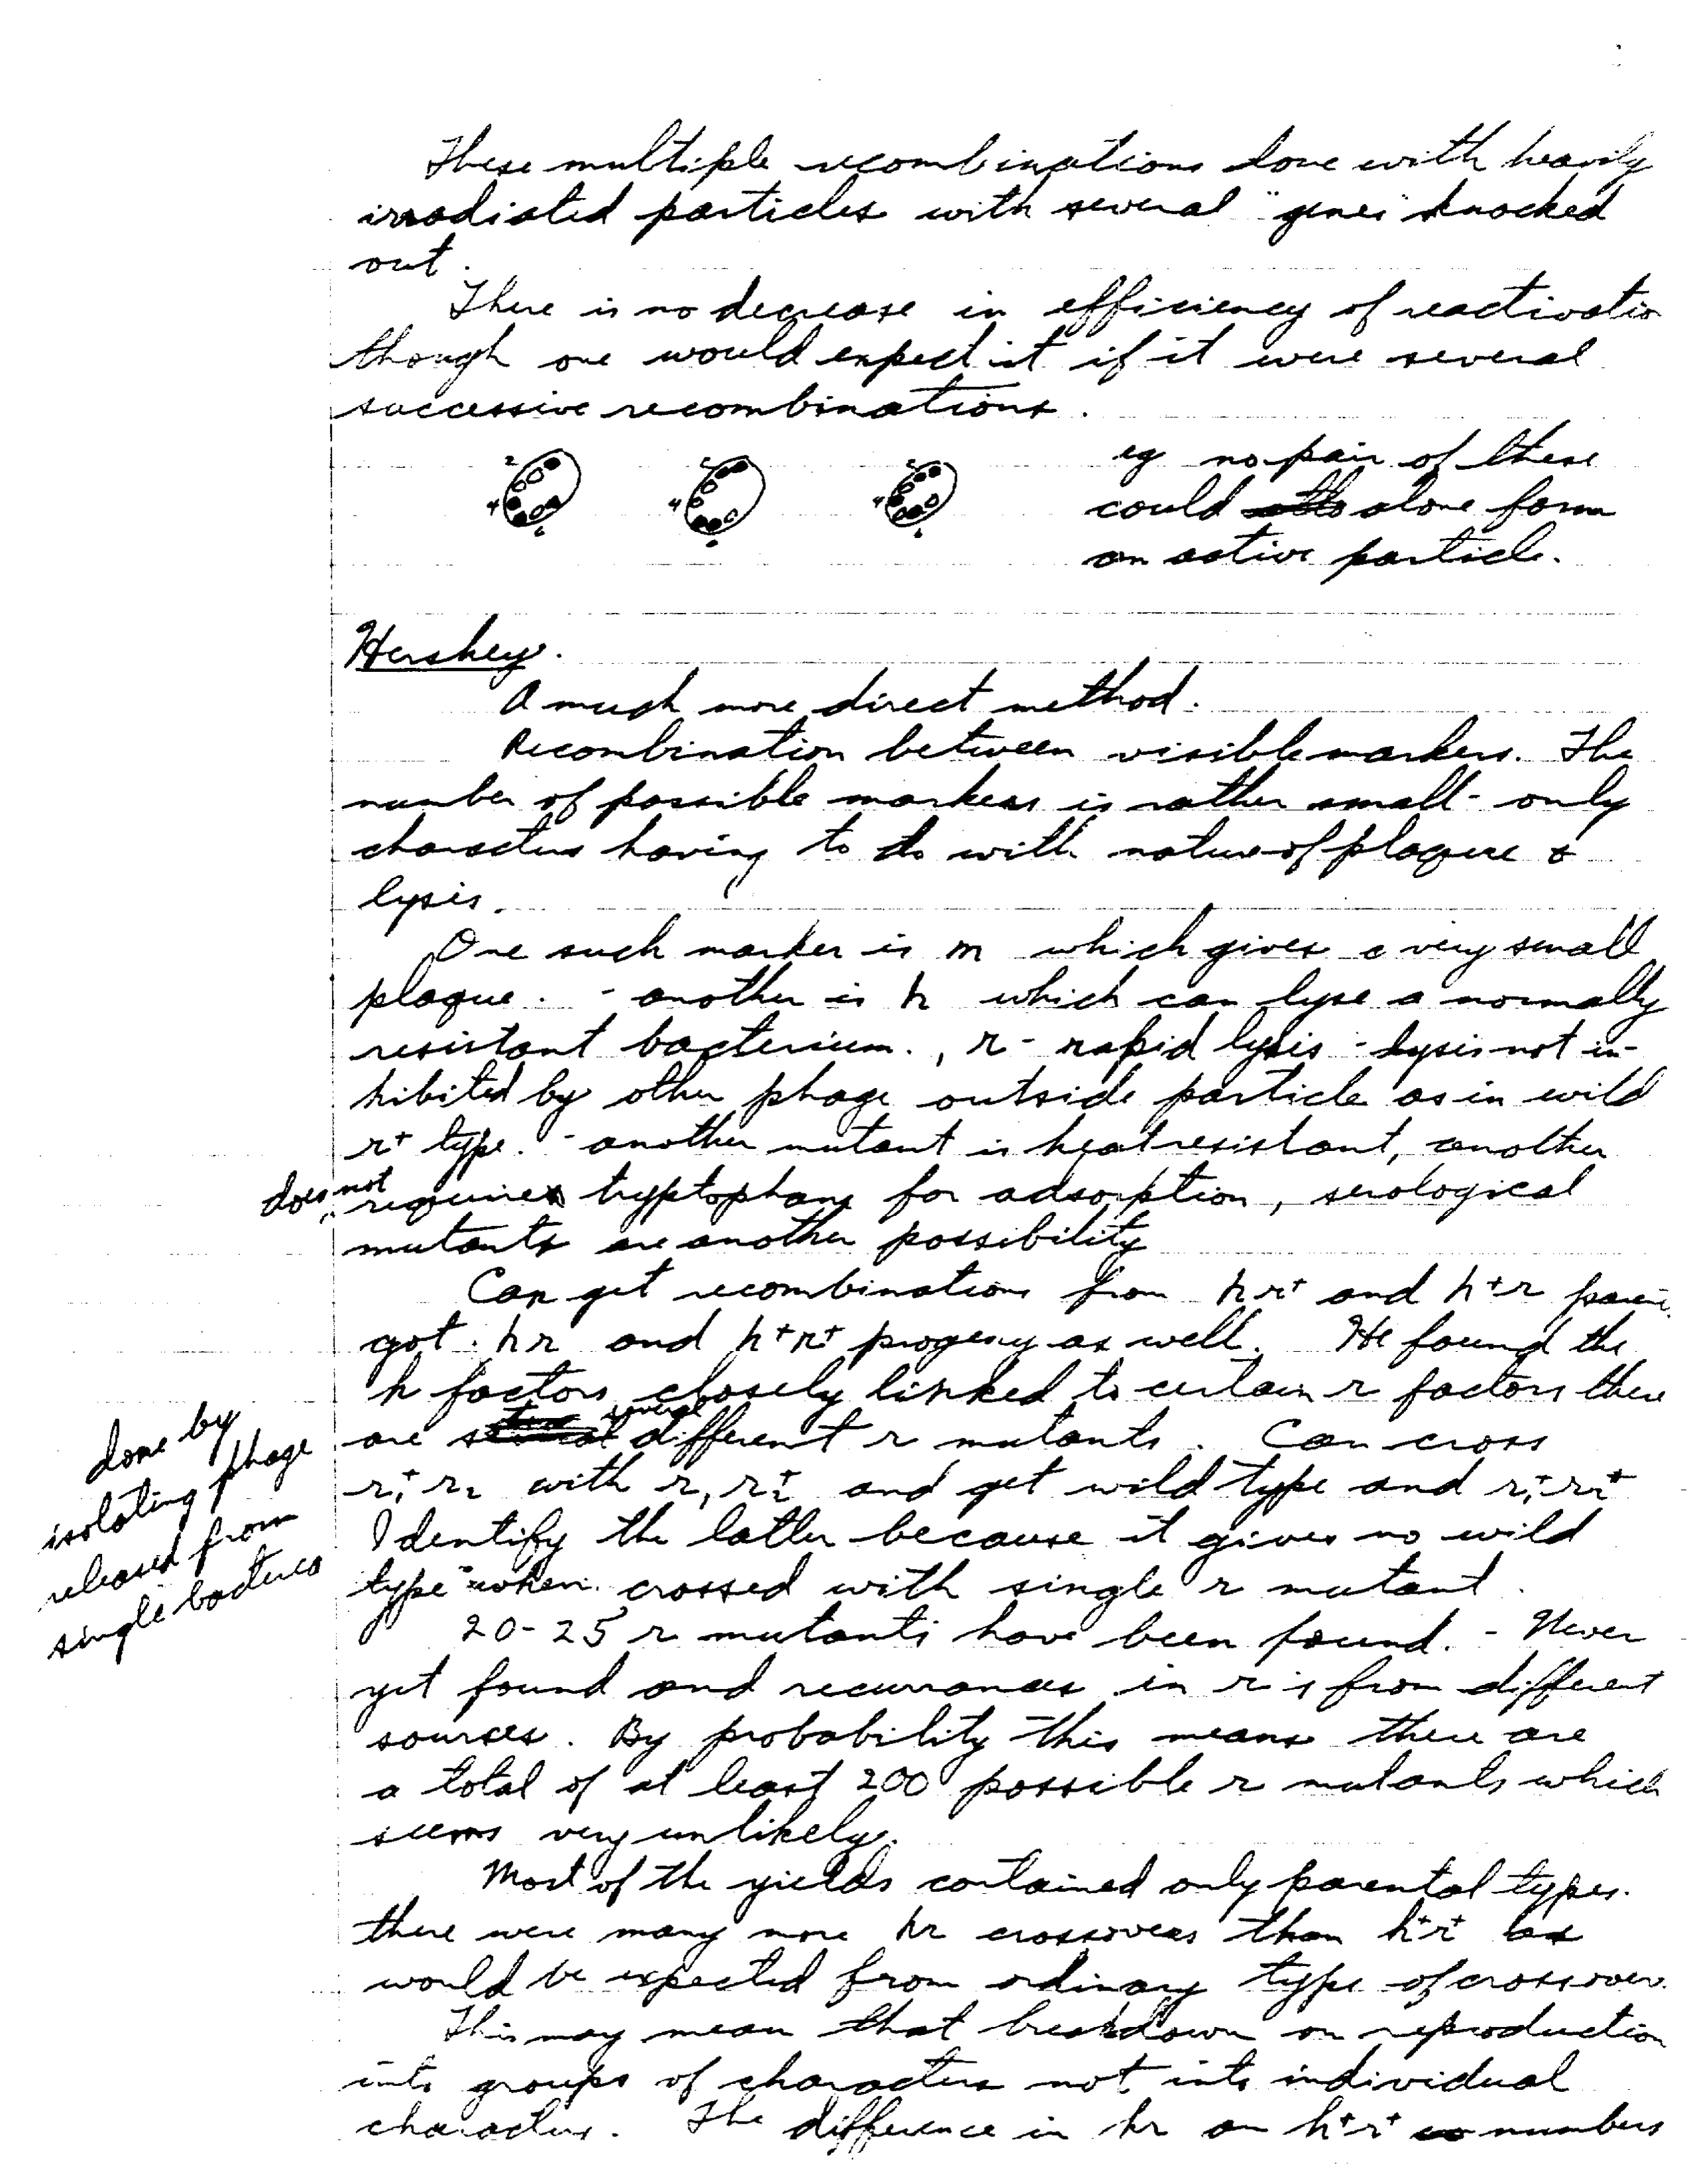 These multiple recombinations done with heavily
irradiated particles with several "genes" knocked
out.
There is no decrease in efficiency of reactivatio
though one would expect it if it were several
successive recombinations.
eg no pair of these
could alone form
an active particle.
Hershey.
A much more direct method.
Recombination between visible markers. The
number of possible markers is rather small - only
characters having to do with nature of plaque &
lysis.
One such marker is m which gives a very small
plaque. - another is h which can lyse a normally
resistant bacterium., r - rapid lysis - lysis not in-
hibited by other phage outside particle as in wild
r+ type. - another mutant is heat resistant, another
does not require tryptophane for adsorption, serological
mutants are another possibility
Can get recombinations from h r+ and h+ r
got hr and h+r+ progeny as well. He found the
h factors closely linked to certain r factors there
are several different r mutants. Can cross
r1+ r2 with r1 r2+ and get wild type and r1+ r2+
Identify the latter because it gives no wild
type when crossed with single r mutant.
done by
isolating phage
released from
single bacteria
20-25 r mutants have been found. - Never
yet found and recurrances in r's from different
sources. By probability this means there are
a total of at least 200 possible r mutants which
seems very unlikely.
Most of the yields contained only parental types.
there were many more hr crossovers than h+r+ as
would be expected from ordinary type of crossover.
This may mean that breakdown on reproduction
into groups of characters not into individual
characters. The difference in hr on h+r+ numbers